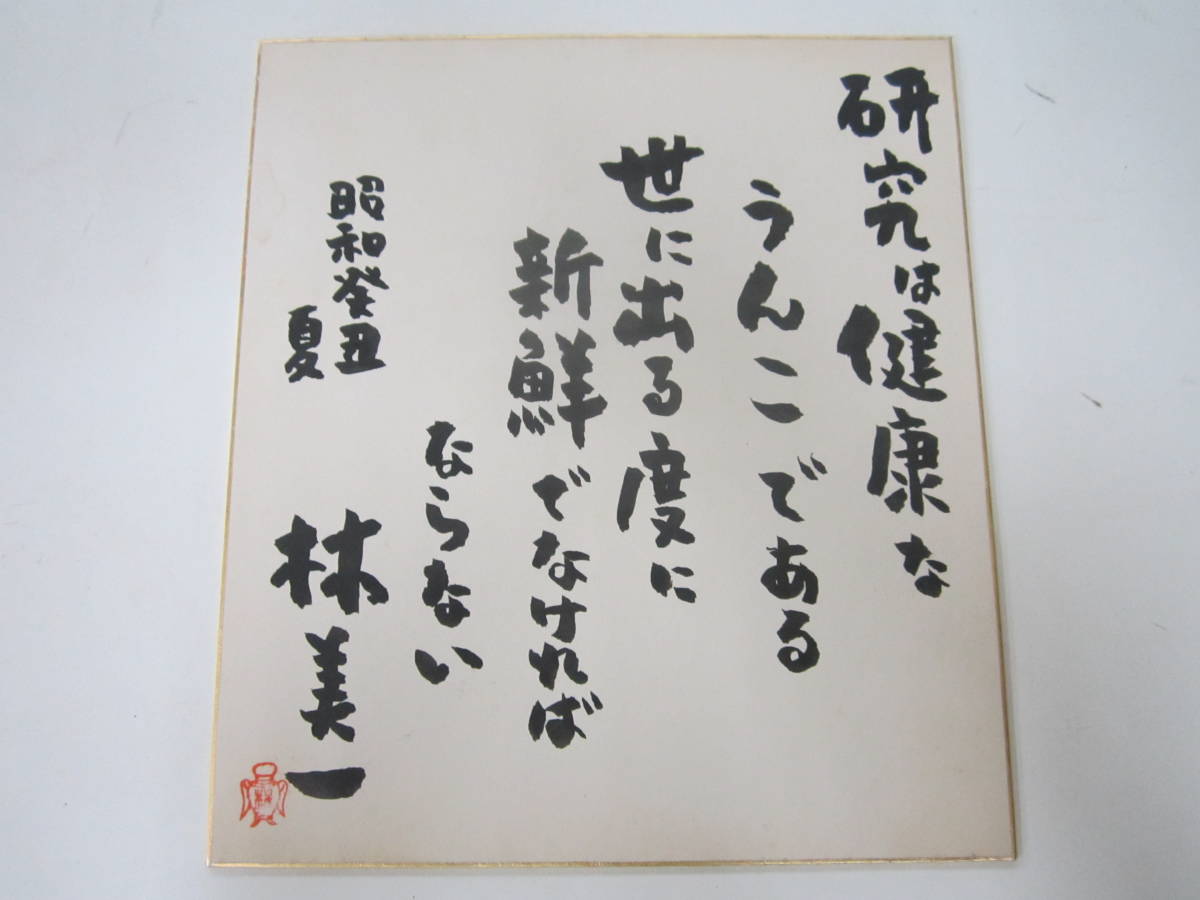 研究は健康な
うんこである
世に出る度に
新鮮でなければ
ならない
昭和癸丑
夏
林美一